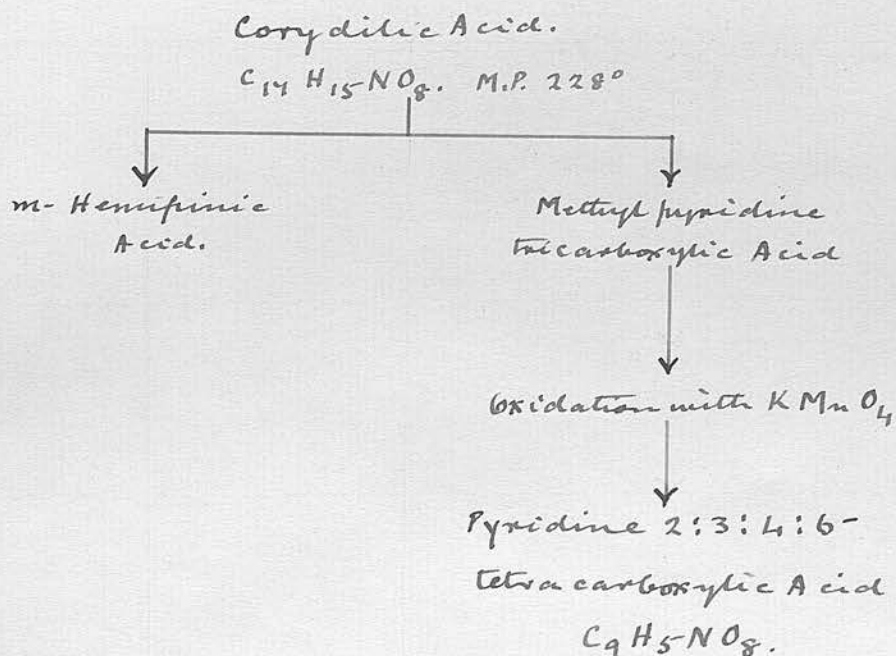 Corydilic Acid.
C₁₇ H₁₅ NO₈. M.P. 228°
m- Hemipinic
Acid.
Methyl pyridine
tricarboxylic Acid
Oxidation with K Mn O₄
Pyridine 2:3:4:6-
tetra carboxylic Acid
C₉ H₅ NO₈.